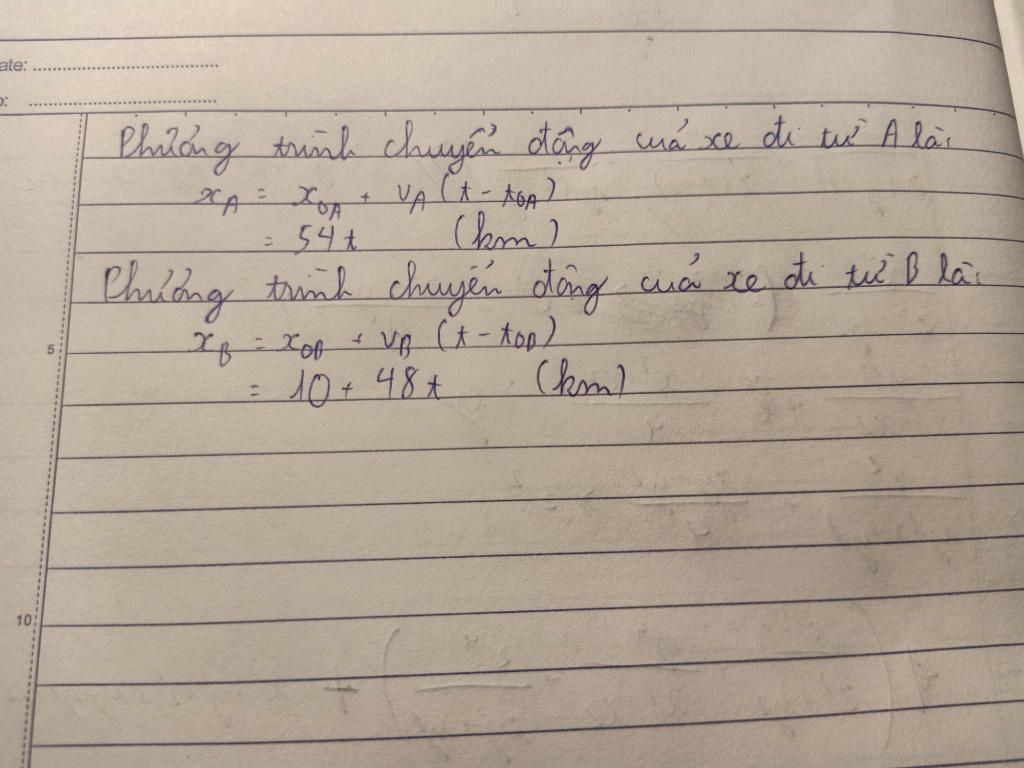 ate: ....................
o: ....................
Phương trình chuyển động của xe đi từ A là:
x_A = x_0A + v_A (t - t_0A)
= 54t (km)
Phương trình chuyển động của xe đi từ B là:
5
x_B = x_0B + v_B (t - t_0B)
= 10 + 48t (km)
10